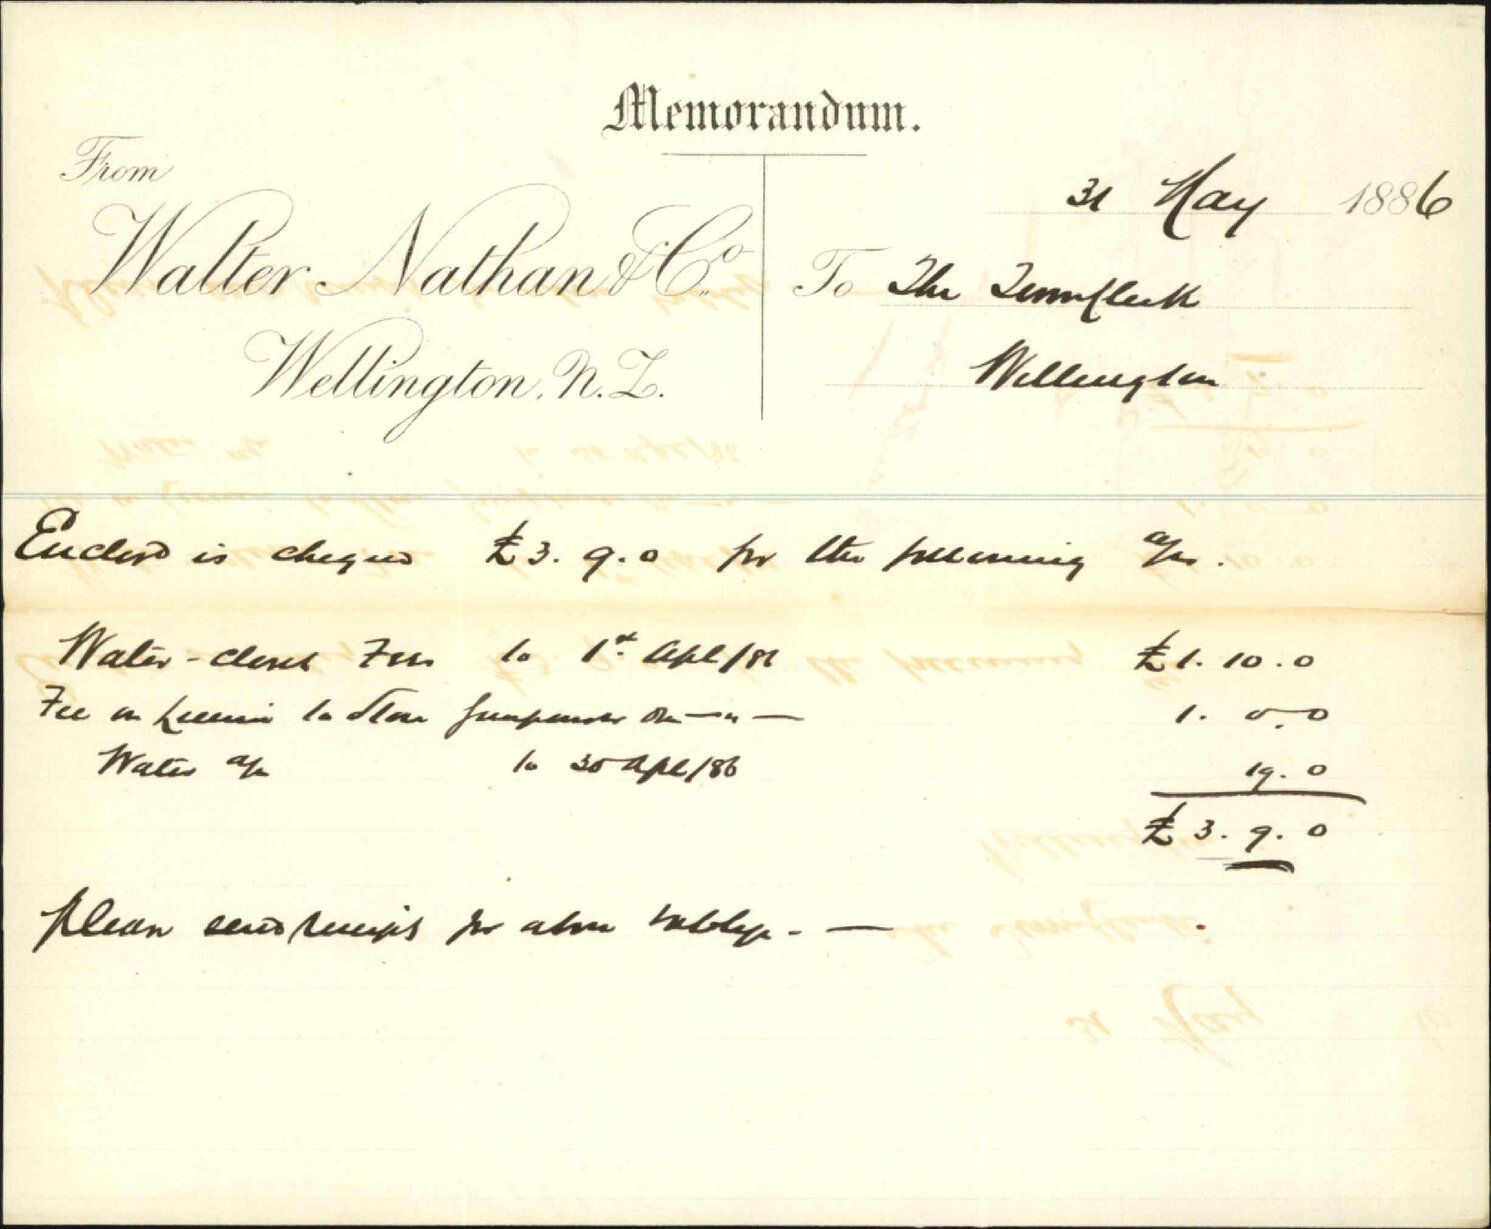 Memorandum.
From
31 May 1886
Walter Nathan & Co.
To The Town Clerk
Wellington, N.Z.
Wellington
Enclosed is cheque £3.9.0 for the following a/cs.
Water-closet Fees to 1st Apl/86 £1.10.0
Fee on License to Store Gunpowder Do — " — 1.0.0
Water a/c to 30 Apl/86 19.0
£3.9.0
Please send receipts for above & oblige. —